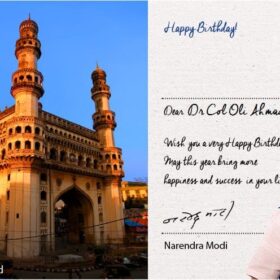 Happy Birthday!
Dear Dr Col Oli Ahmad
Wish you a very Happy Birthday
May this year bring more
happiness and success in your li
नरेन्द्र मोदी
Narendra Modi